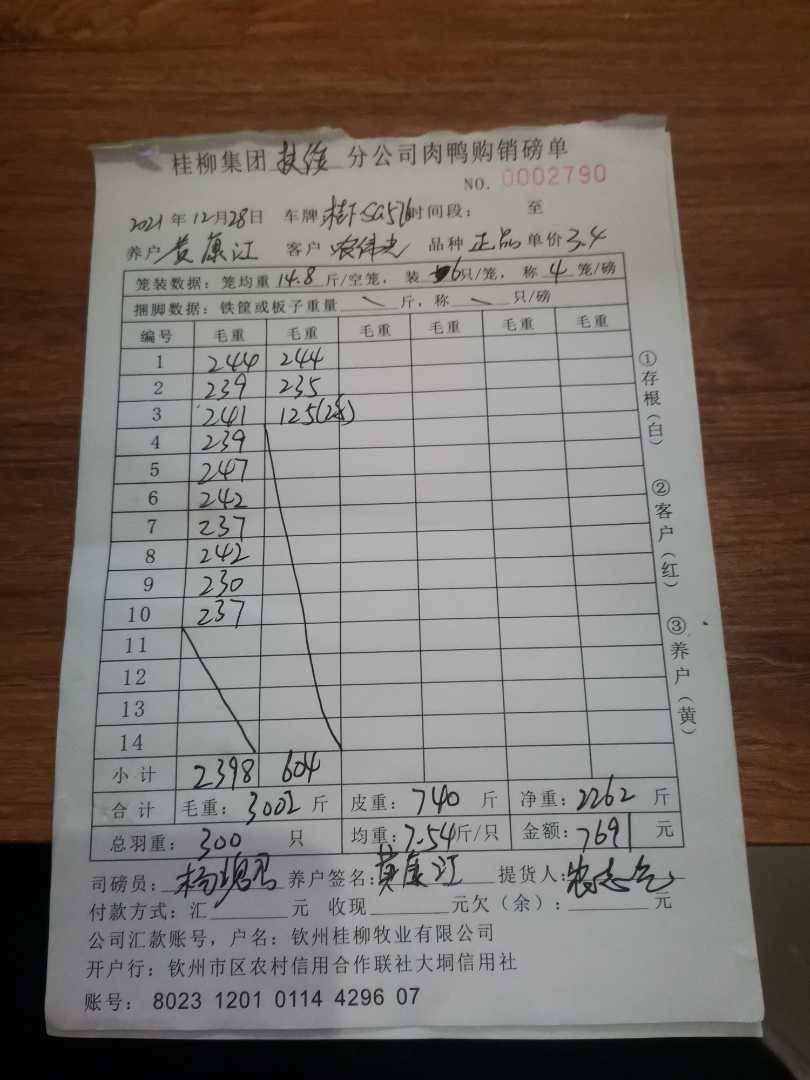 桂柳集团 扶绥 分公司肉鸭购销磅单
NO. 0002790
2021年12月28日 车牌 桂F SG576 时间段： 至
养户 黄康江 客户 农伟志 品种 正品 单价 3.4
笼装数据：笼均重 14.8 斤/空笼，装 6只/笼，称 4 笼/磅
捆脚数据：铁筐或板子重量 \ 斤，称 \ 只/磅
编号 毛重 毛重 毛重 毛重 毛重 毛重
1 244 244
2 239 235
3 241 125(2笼)
4 239
5 247
6 242
7 237
8 242
9 230
10 237
11
12
13
14
小计 2398 604
合计 毛重：3002 斤 皮重：740 斤 净重：2262 斤
总羽重：300 只 均重：7.54斤/只 金额：7691 元
司磅员： 养户签名：黄康江 提货人：
付款方式：汇 元 收现 元欠（余）： 元
公司汇款账号，户名：钦州桂柳牧业有限公司
开户行：钦州市区农村信用合作联社大垌信用社
账号： 8023 1201 0114 4296 07
①存根（白）
②客户（红）
③养户（黄）